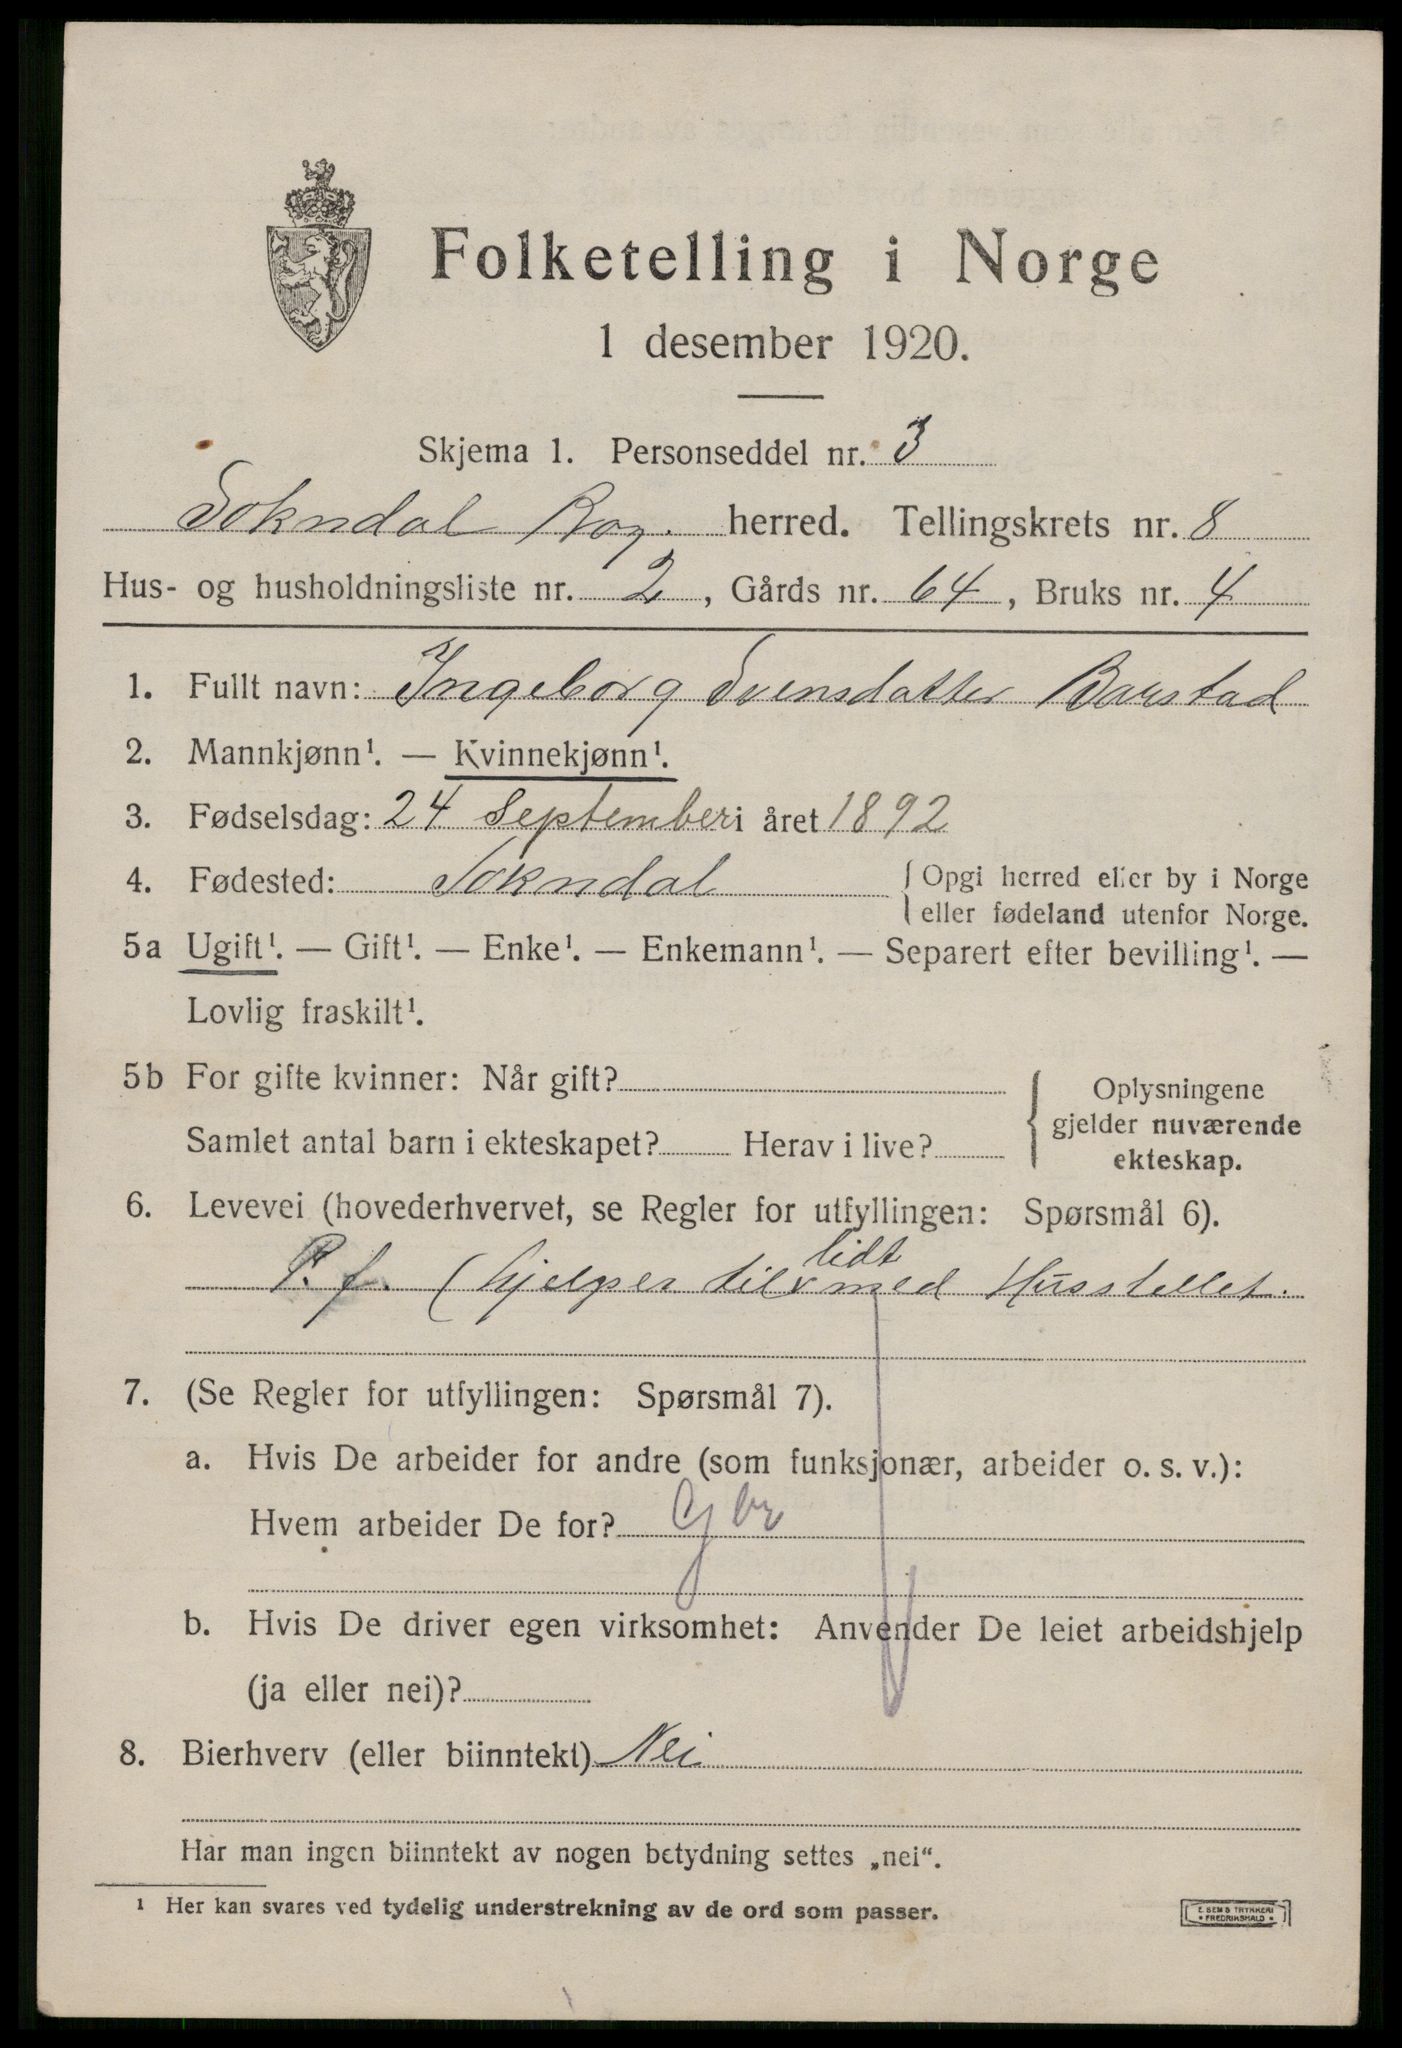 Folketelling i Norge
1 desember 1920.
Skjema 1. Personseddel nr. 3
Sokndal Rog. herred. Tellingskrets nr. 8
Hus- og husholdningsliste nr. 2, Gårds nr. 64, Bruks nr. 4
1. Fullt navn: Ingeborg Svensdatter Barstad
2. Mannkjønn¹. — Kvinnekjønn¹.
3. Fødselsdag: 24 September i året 1892
4. Fødested: Sokndal { Opgi herred eller by i Norge
eller fødeland utenfor Norge.
5a Ugift¹. — Gift¹. — Enke¹. — Enkemann¹. — Separert efter bevilling¹. —
Lovlig fraskilt¹.
5b For gifte kvinner: Når gift?
Samlet antal barn i ekteskapet? Herav i live?
Oplysningene
gjelder nuværende
ekteskap.
6. Levevei (hovederhvervet, se Regler for utfyllingen: Spørsmål 6).
lidt
P. f. (hjelper til v med Husstellet.
7. (Se Regler for utfyllingen: Spørsmål 7).
a. Hvis De arbeider for andre (som funksjonær, arbeider o. s. v.):
Hvem arbeider De for? Gbr
b. Hvis De driver egen virksomhet: Anvender De leiet arbeidshjelp
(ja eller nei)?
8. Bierhverv (eller biinntekt) Nei
Har man ingen biinntekt av nogen betydning settes „nei“.
¹ Her kan svares ved tydelig understrekning av de ord som passer.
E. SEMS TRYKKERI
• FREDRIKSHALD •